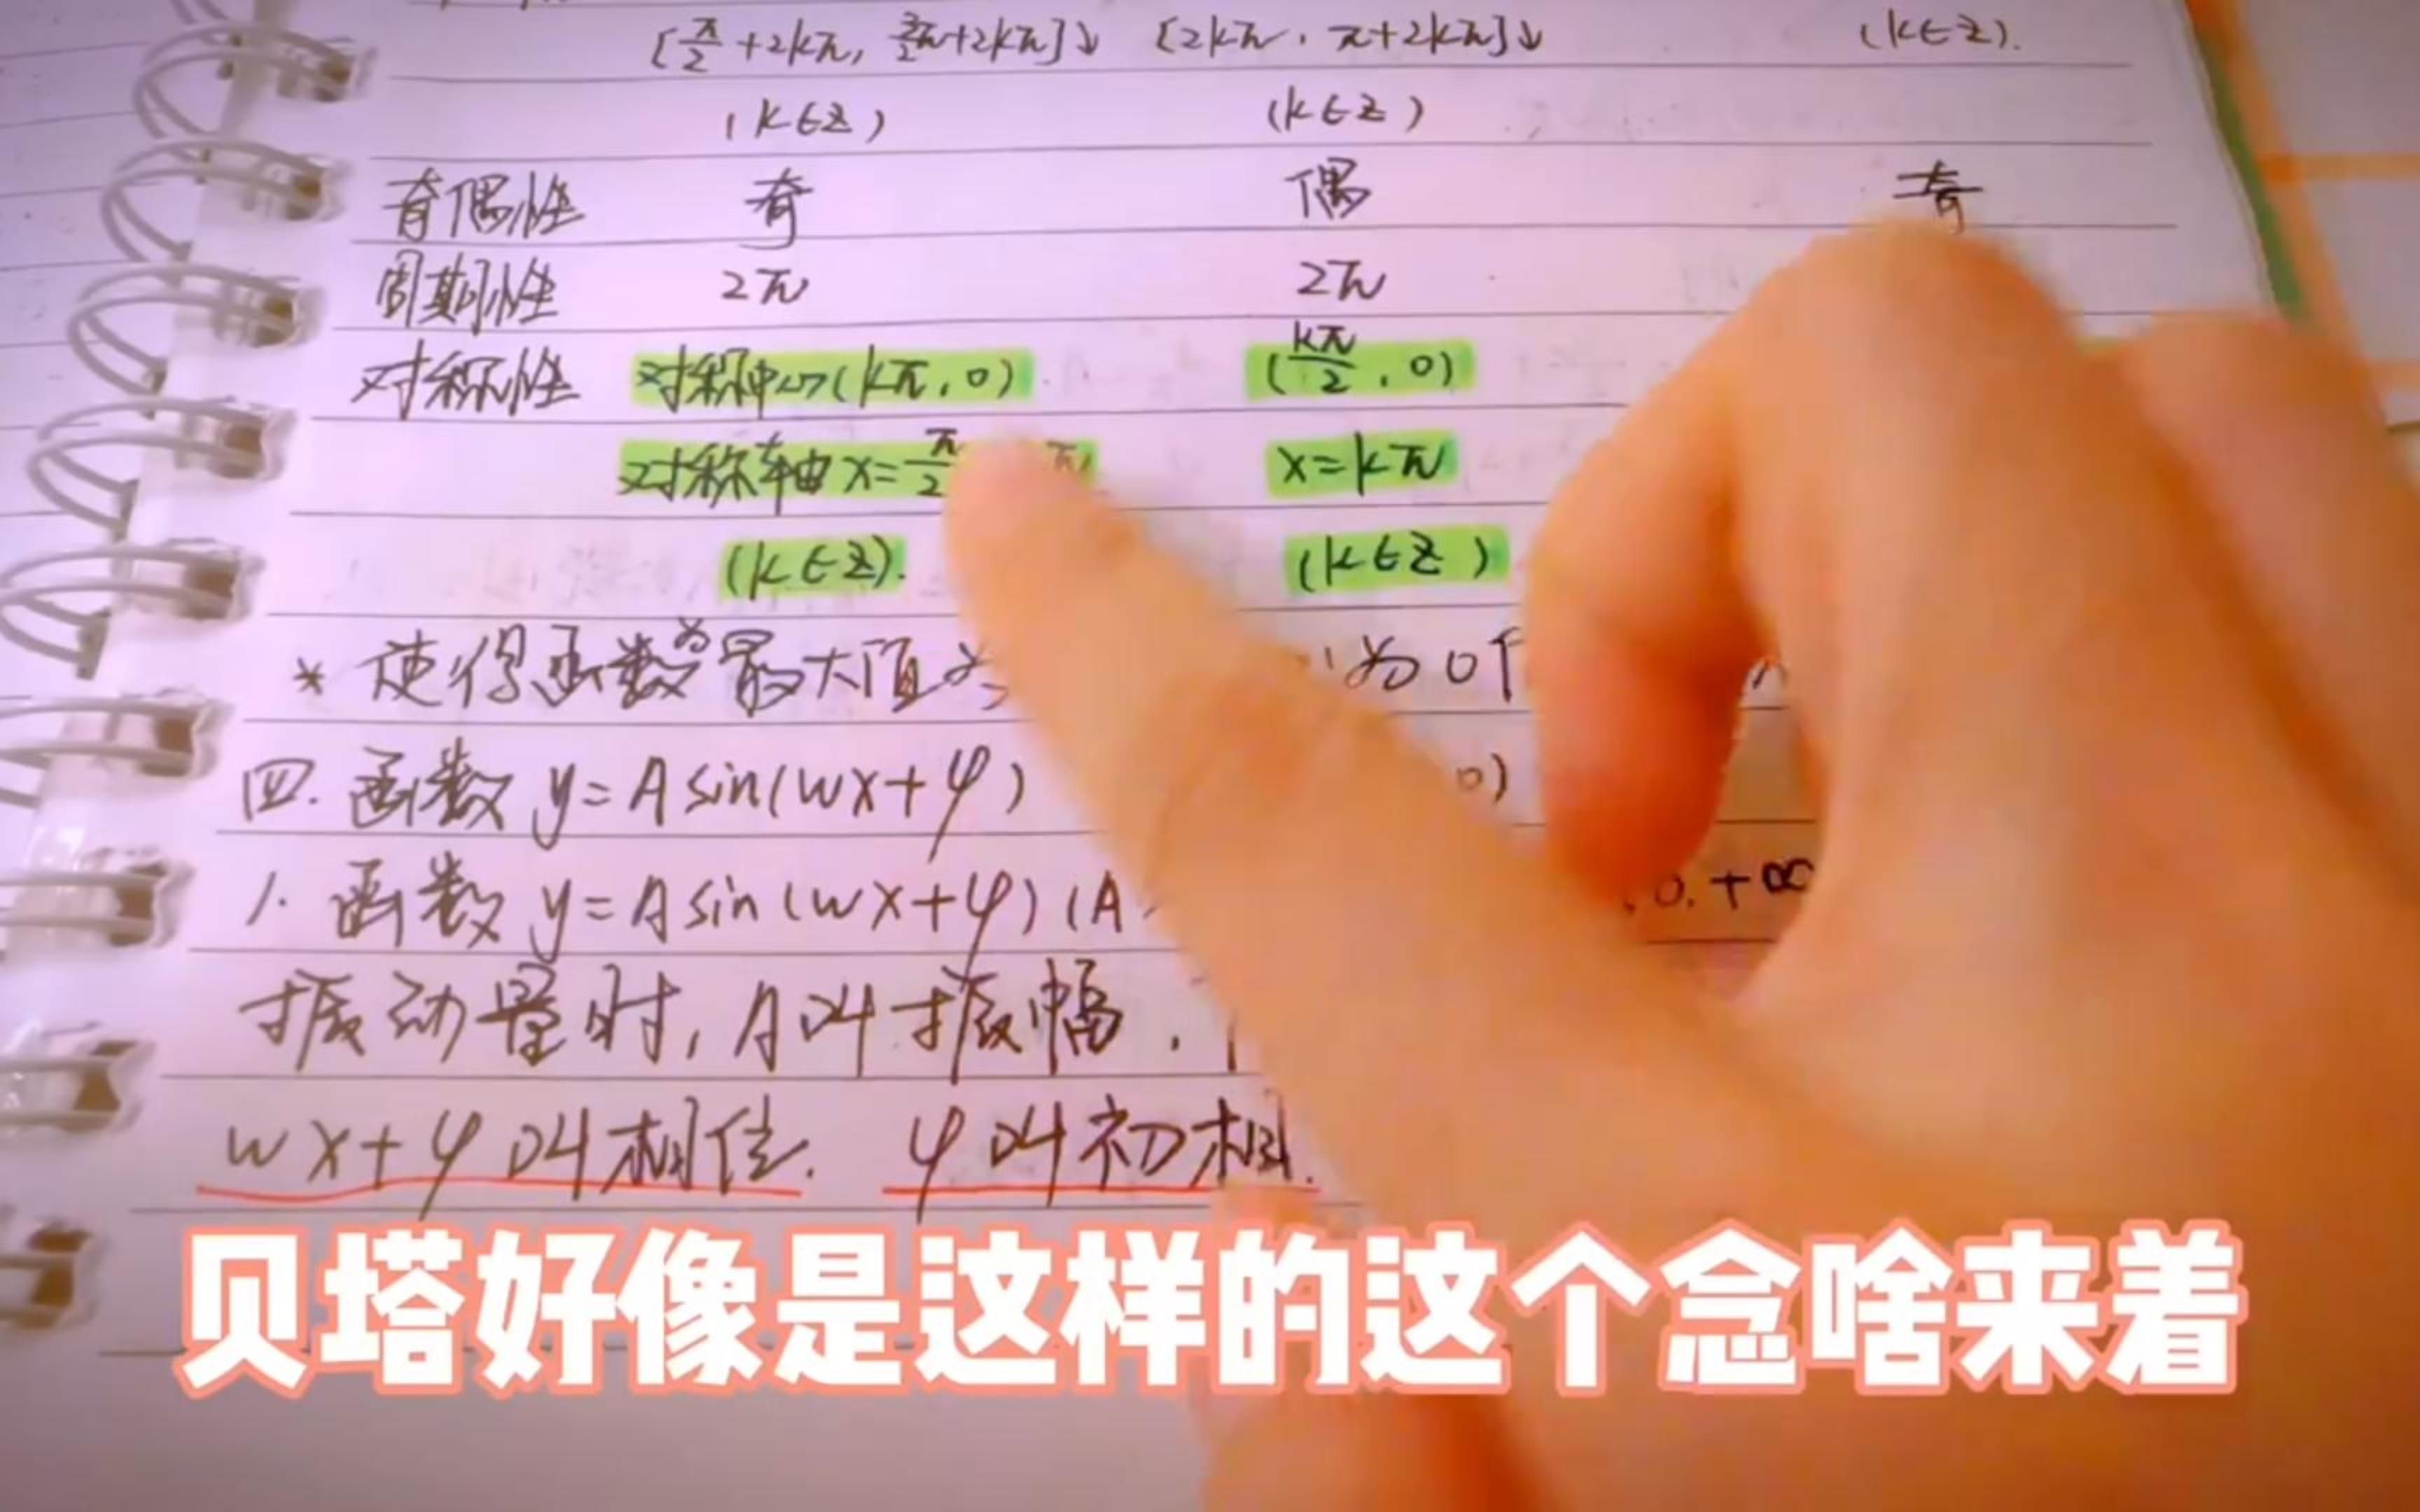 [π/2+2kπ, 3/2π+2kπ]↓ [2kπ, π+2kπ]↓ (k∈Z).
(k∈Z) (k∈Z)
奇偶性 奇 偶 奇
周期性 2π 2π
对称性 对称中心(kπ,0) (kπ/2,0)
对称轴x=π/2 π x=kπ
(k∈Z). (k∈Z)
* 使得函数为最大值 为0
四.函数y=Asin(wx+φ) 0)
1.函数y=Asin(wx+φ)(A 0.+∞
振动量时,A叫振幅.
wx+φ叫相位. φ叫初相.
贝塔好像是这样的这个念啥来着